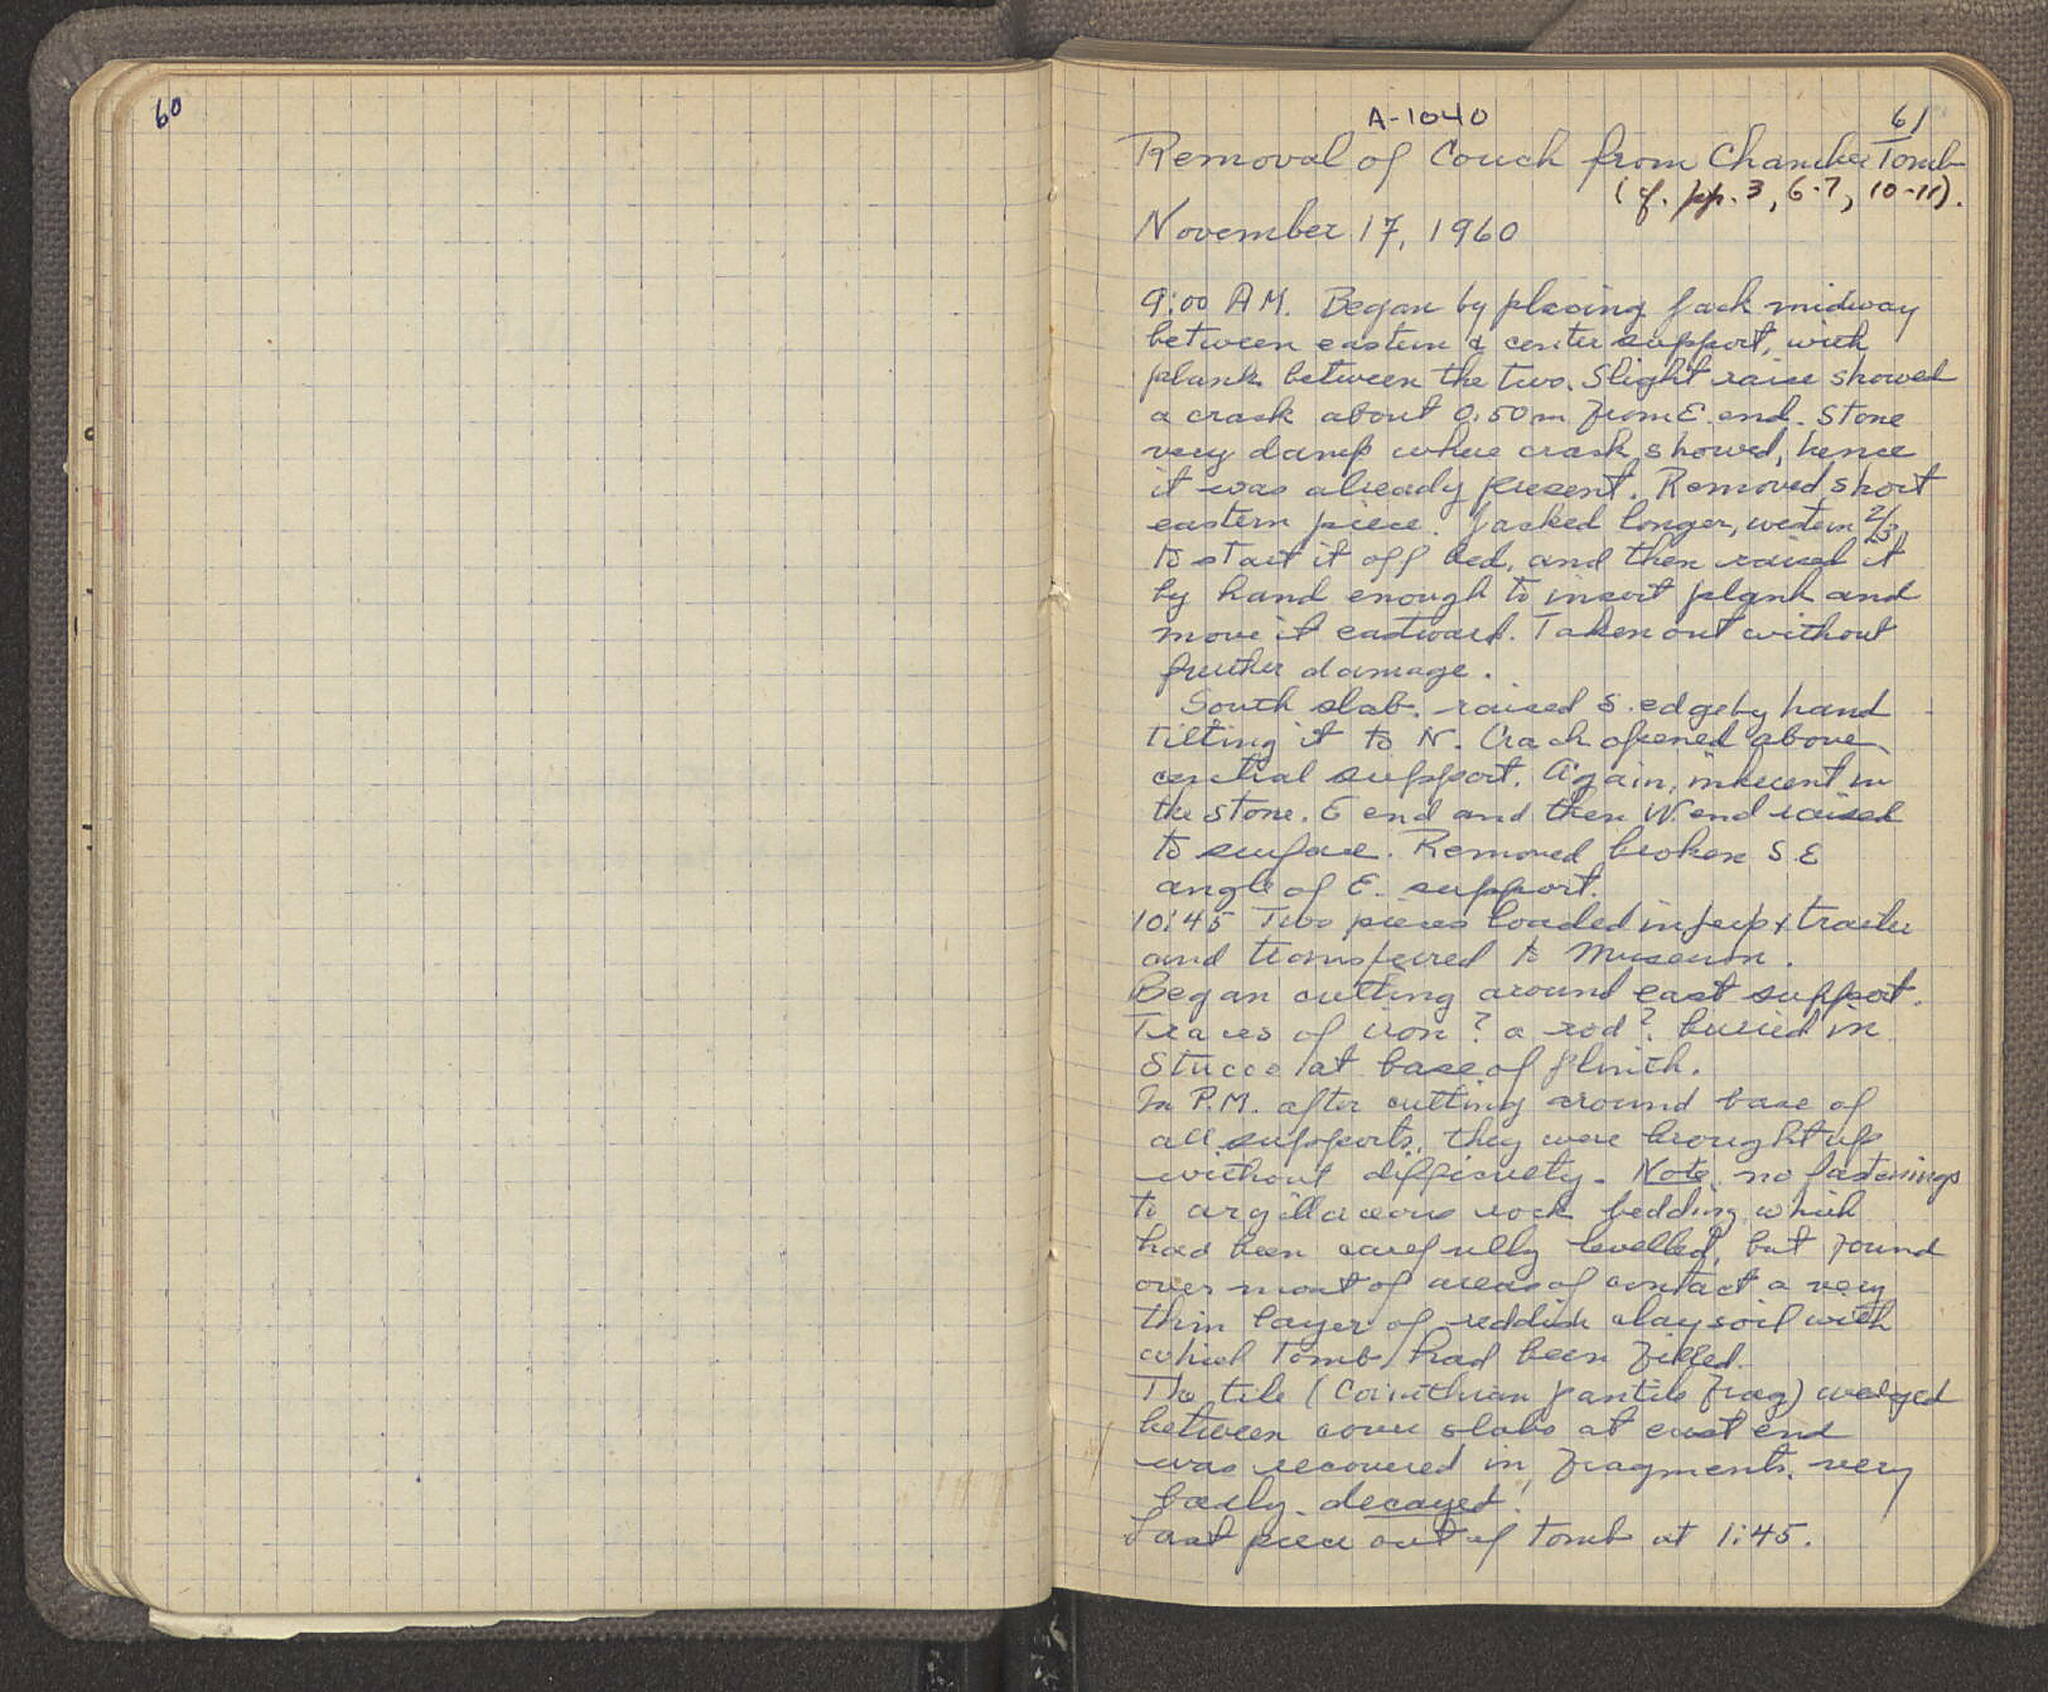 60
A-1040
61
Removal of Couch from Chamber Tomb
(cf. pp. 3, 6-7, 10-11).
November 17, 1960
9:00 A.M. Began by placing jack midway
between eastern & center support, with
plank between the two. Slight raise showed
a crack about 0.50m from E. end. Stone
very damp where crack showed, hence
it was already present. Removed short
eastern piece. Jacked longer, western 2/3,
to start it off bed, and then raised it
by hand enough to insert plank and
move it eastward. Taken out without
further damage.
South slab. raised S. edge by hand
tilting it to N. Crack opened above
central support. Again, inherent in
the stone. E end and then W. end raised
to surface. Removed broken S.E
angle of E. support.
10:45 Two pieces loaded in jeep & trailer
and transferred to Museum.
Began cutting around east support.
Traces of iron? a rod? buried in
stucco at base of plinth.
In P.M. after cutting around base of
all supports, they were brought up
without difficulty. Note, no fastenings
to argillaceous rock bedding, which
had been carefully levelled, but found
over most of areas of contact a very
thin layer of reddish clay soil with
which Tomb had been filled.
The tile (Corinthian pantile frag) wedged
between cover slabs at east end
was recovered in fragments, very
badly decayed.
Last piece out of tomb at 1:45.